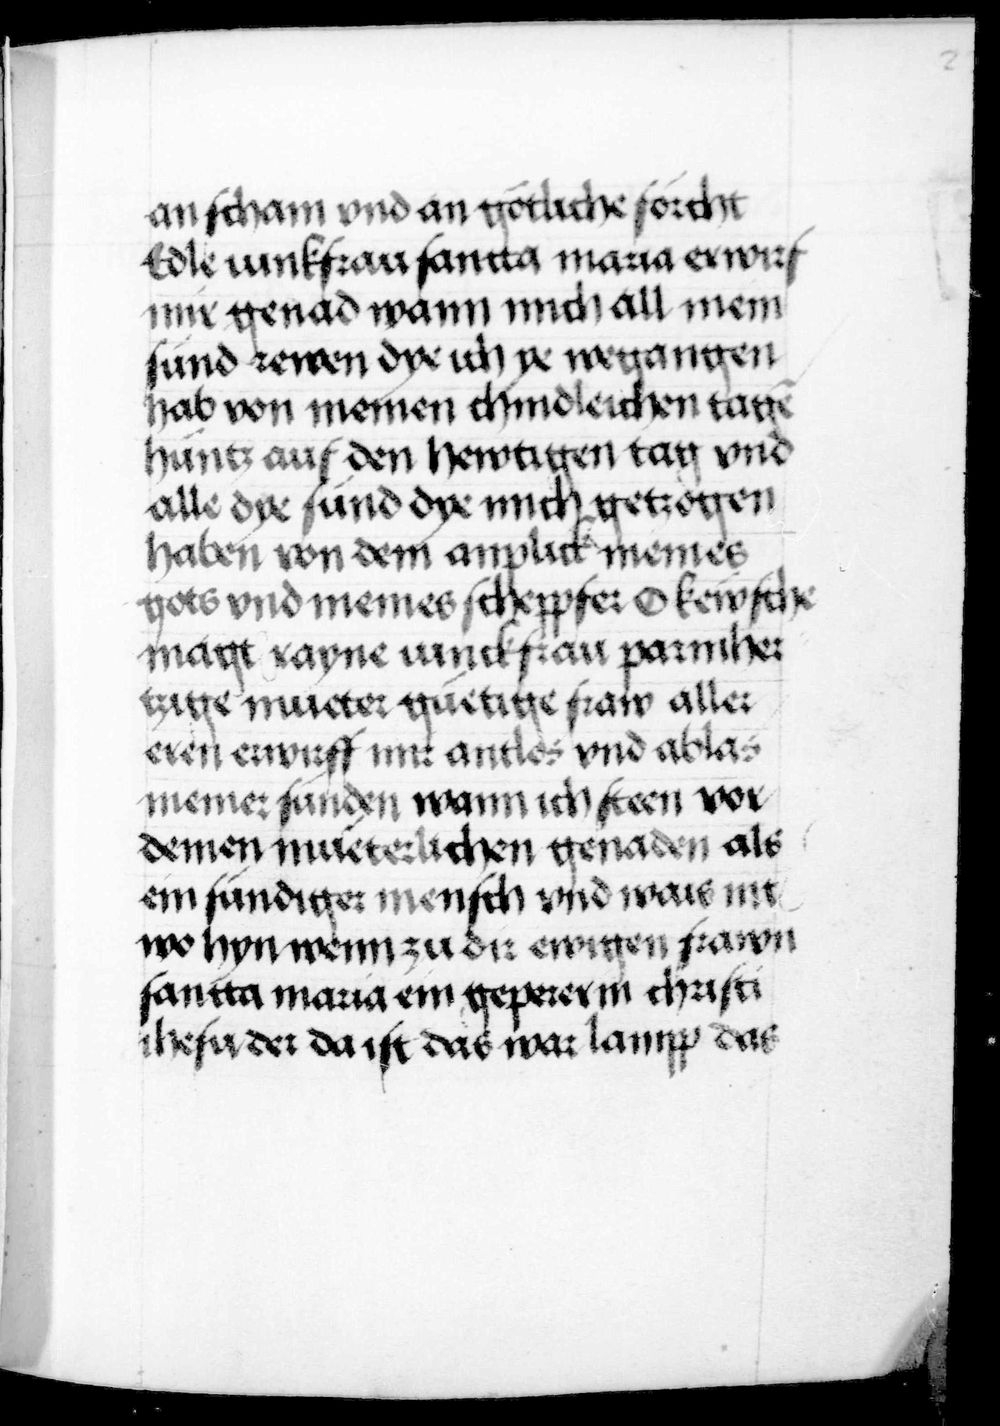 2
an scham vnd an götliche förcht
Edle iunkfrau sancta maria erwirf
mir genad wann mich all mein
sünd rewen dye ich ye wegangen
hab von meinen chindleichen tagē
hüntz auf den hewtigen tag vnd
alle dye sünd dye mich getzogen
haben von dem anplick meines
gots vnd meines scheppfer O keẅsche
magt rayne iunckfrau parmher
tzige mueter güetige fraw aller
eren erwirff mir antlos vnd ablas
meiner sunden wann ich steen vor
deinen müeterlichen genaden als
ein sündiger mensch vnd wais nit
wo hyn wenn zu dir ewigen frawn
sancta maria ein gepererin christi
ihesu der da ist das war lampp das